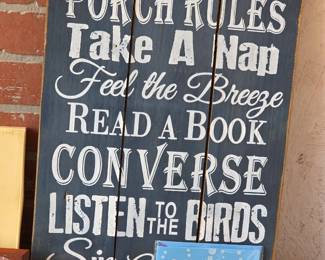 PORCH RULES
Take A Nap
Feel the Breeze
READ A BOOK
CONVERSE
LISTEN TO THE BIRDS